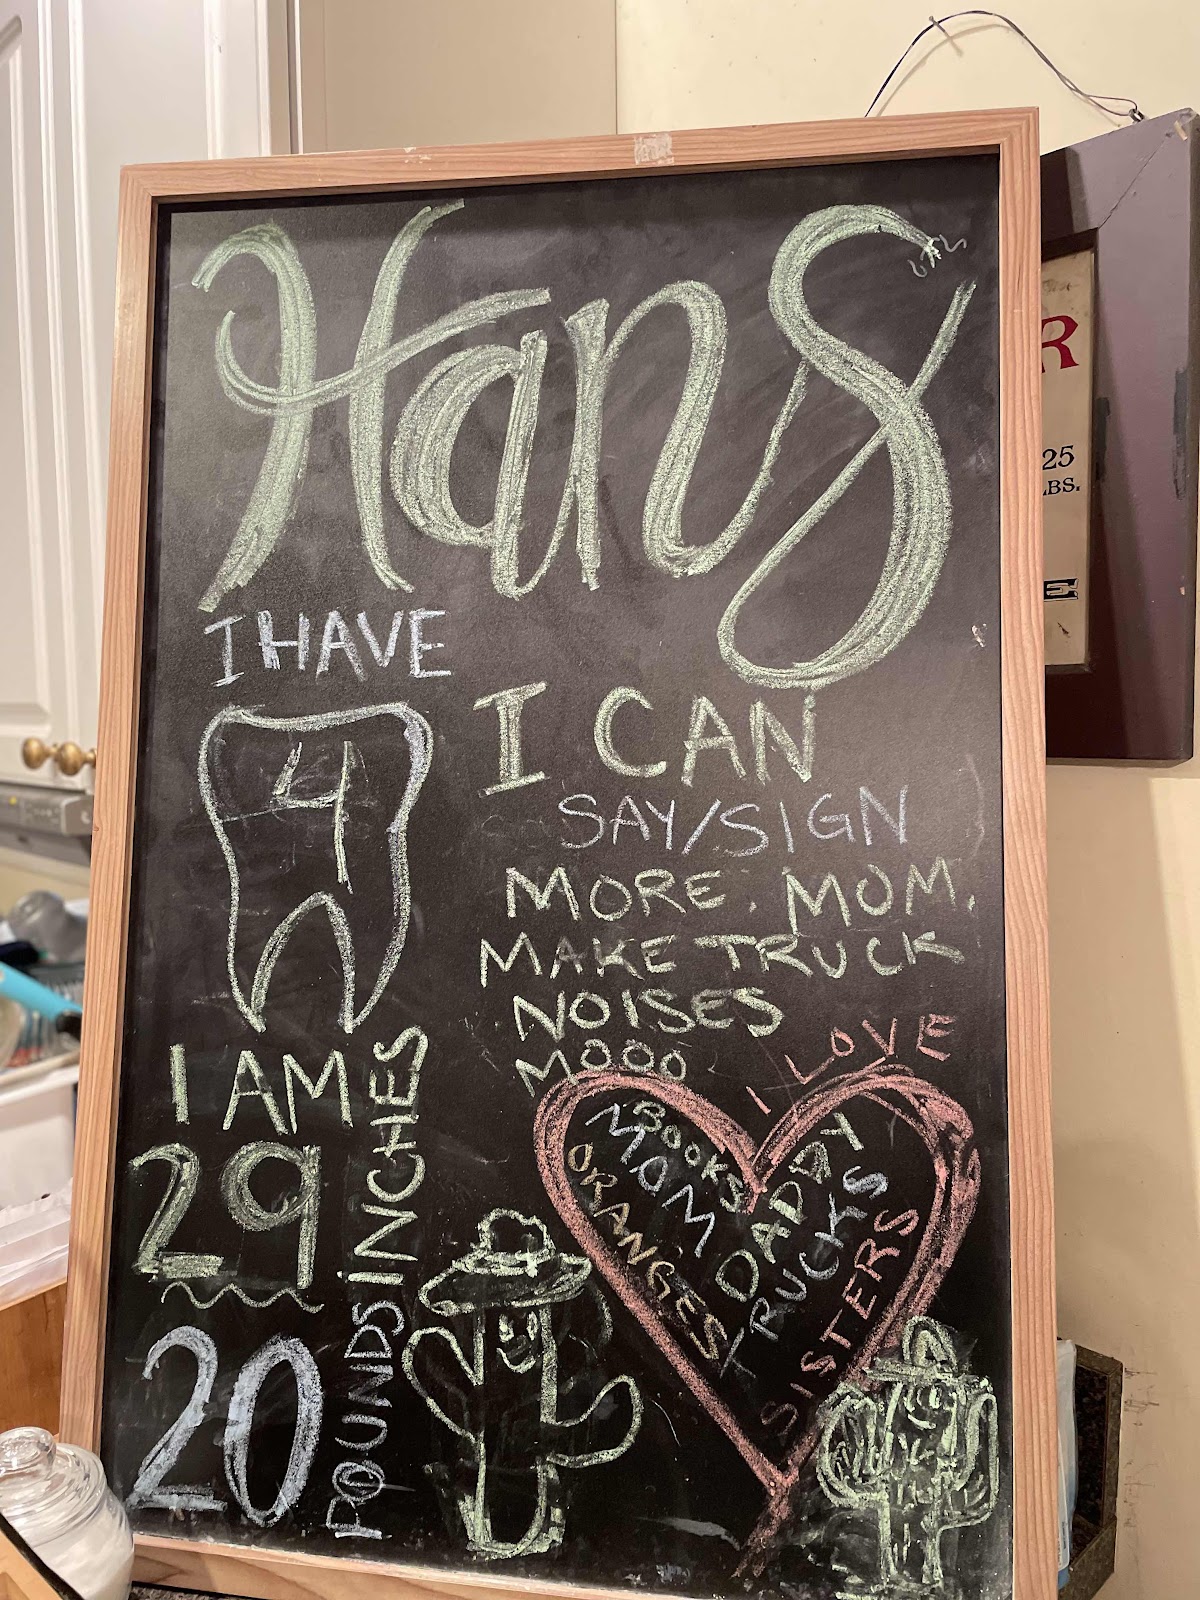 Hans
I HAVE
4
I CAN
SAY/SIGN
MORE. MOM.
MAKE TRUCK
NOISES
MOOO
I AM
29
INCHES
20
POUNDS
I LOVE
BOOKS
MOM
ORANGES
DADDY
TRUCKS
SISTERS
R
25
LBS.
E